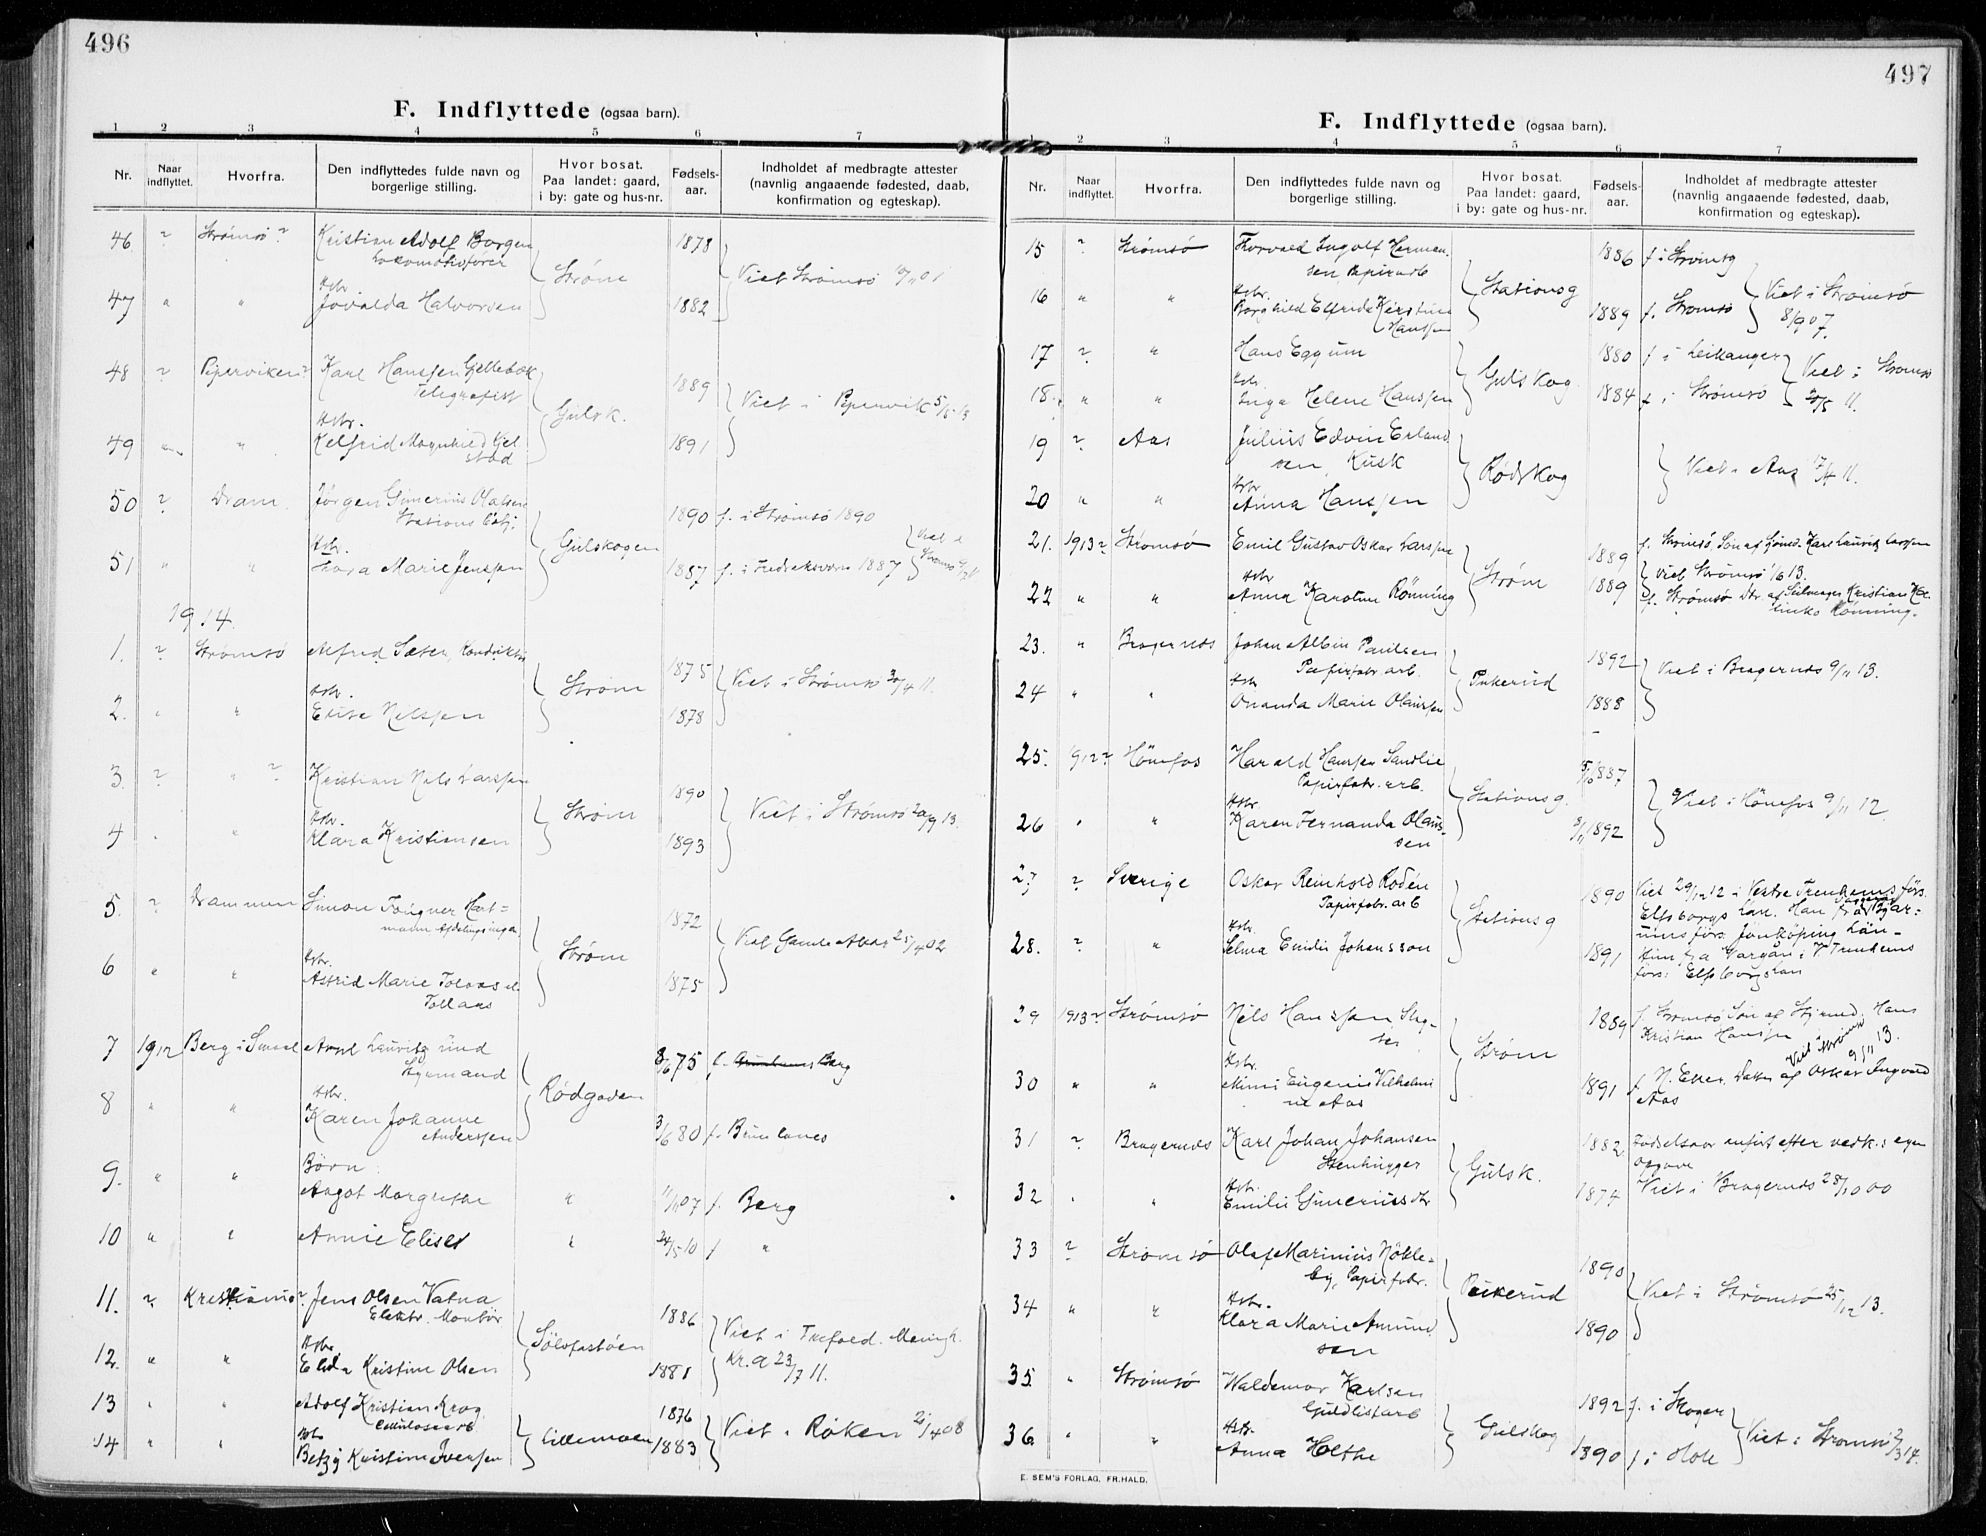 496
F. Indflyttede (ogsaa barn).
1 2 3 4 5 6 7
Nr. Naar indflyttet. Hvorfra. Den indflyttedes fulde navn og borgerlige stilling. Hvor bosat. Paa landet: gaard, i by: gate og hus-nr. Fødsels-aar. Indholdet af medbragte attester (navnlig angaaende fødested, daab, konfirmation og egteskap).
46 ? Strømsø ? Kristian Adolf Borgen 1878
Lokomotivfører Strøm Viet Strømsø
Hstr.
47 " " Jovalda Halvorsen 1882
48 ? Piperviken ? Karl Hanssen Gjellebæk 1889
Telegrafist Gulsk. Viet i Pipervik 5/5 13
Hstr.
49 " " Magnhild Gjel- 1891
stad
50 ? Dram. Jørgen Gunerius Olafsen 1890 f. i Strømsø 1890
Stations Gulskogen Viet i
Hstr. Strømsø
51 " " Thora Marie Jenssen 1887 f. i Fredriksværn 1887
1914.
1. ? Strømsø Alfred Sæter, Konduktør 1875
Strøm Viet i Strømsø 30/4 11.
Hstr.
2. " " Elise Nilssen 1878
3 ? " ? Kristian Nils Larssen 1890
Strøm Viet i Strømsø 20/9 13.
Hstr.
4 " " Klara Kristiansen 1893
5. ? Drammen Simon Fougner Hart- 1872
mann Afdelingsing. Strøm Viet Gamle Aker 25/4 02
Hstr.
6 " " Astrid Marie 1875
Tollaas
7 1912 Berg i Smaal. Arnt Lauritz Lund 8/6 75 f. Berg
Styrmand Rødgaden
Hstr.
8 " " Karen Johanne 3/6 80 f. Brunlanes
Anderssen
Børn:
9. " " Aagot Margrethe " 1/11 07 f. Berg
10 " " Annie Elise " 24/5 10 f "
11. ? Kristiania ? Jens Olsen Vatna 1886
Elektr. Montør Sølvfastøen Viet i Trefold. Menigh.
Hstr.
12. " " Elida Kristine Olsen 1881 Kr.a 23/7 11.
13 " " Adolf Kristian Krog 1876
Cellulosearb. Lillemoen Viet i Røken 2/4 08
Hstr.
14 " " Betzy Kristine Iversen 1883
497
F. Indflyttede (ogsaa barn).
1 2 3 4 5 6 7
Nr. Naar indflyttet. Hvorfra. Den indflyttedes fulde navn og borgerlige stilling. Hvor bosat. Paa landet: gaard, i by: gate og hus-nr. Fødsels-aar. Indholdet af medbragte attester (navnlig angaaende fødested, daab, konfirmation og egteskap).
15 ? Strømsø Thorvald Ingolf Herman- 1886 f. i Strømsø
sen, Papirarb Stationsg Viet i Strømsø
Hstr. 8/9 07.
16 " " Borghild Elfrida Kirstine 1889 f. Strømsø
Hanssen
17 ? " Hans Eggum 1880 f. i Leikanger
Gulskog Viet i Strømsø
Hstr.
18. " " Inga Helene Hanssen 1884 f. i Strømsø 20/5 11.
19 ? Aas Julius Edvin Erland-
sen, Kusk Rødskog Viet i Aas 17/4 11.
Hstr.
20 " " Anna Hanssen
21. 1913? Strømsø Emil Gustav Oskar Larssen 1889 f. Strømsø, Søn af Karl Lauritz Larssen
Strøm Viet Strømsø 1/6 13.
Hstr.
22 " " Anna Karoline Rønning 1889 f. Strømsø Dtr. af Kristian
Rønning.
23. " Bragernæs Johan Albin Paulsen 1892
Papirfabr. arb. Pukerud Viet i Bragernæs 9/11 13.
Hstr
24 " " Ovanda Marie Olaussen 1888
25. 1912? Hønefos Harald Hanssen Sandlie 1887
Papirfabr. arb. Stationsg. Viet i Hønefos 9/11 12
Hstr.
26 " " Karen Fernanda Olaus- 3/11 1892
sen
27 ? Sverige Oskar Reinhold Rodén 1890 Viet 29/12 12 i Vestra Trenhems förs.
Papirfabr. arb Stationsg Elfsborgs Län. Han fra
förs. Jönköping Län-
Hstr.
28. ? " Selma Emilia Johansson 1891 Hun fra Vargön i V. Trenhems
förs. Elfsborgs Län
29 1913? Strømsø Nils Hanssen 1889 f. Strømsø Søn af Hans
Strøm Kristian Hanssen
Hstr. Viet i Strømsø 9/11 13.
30 " " Mimi Eugenie Vilhelmi- 1891 f. N. Eker. Datter af Oskar Ingvald
ne Aas Aas
31 ? Bragernæs Karl Johan Johansen 1882 Fødselsaar anført efter vedk.s egen
Stenhugger Gulsk. Opgave
Hstr.
32 " " Emilie Guneriusdtr 1874 Viet i Bragernæs 28/10 00
33 ? Strømsø Olaf Marinius Nökle- 1890
by, Papirfabr. Pukerud Viet i Strømsø 25/12 13.
Hstr.
34 " " Klara Marie Amund- 1890
sen
35 " Strømsø Waldemar Karlsen 1892 f. i Skoger
Guldlistarb Gulskog Viet i Strømsø 2/3 14.
Hstr.
36. " " Anna Holthe 1890 f. i Hole
E. SEM'S FORLAG, FR.HALD.